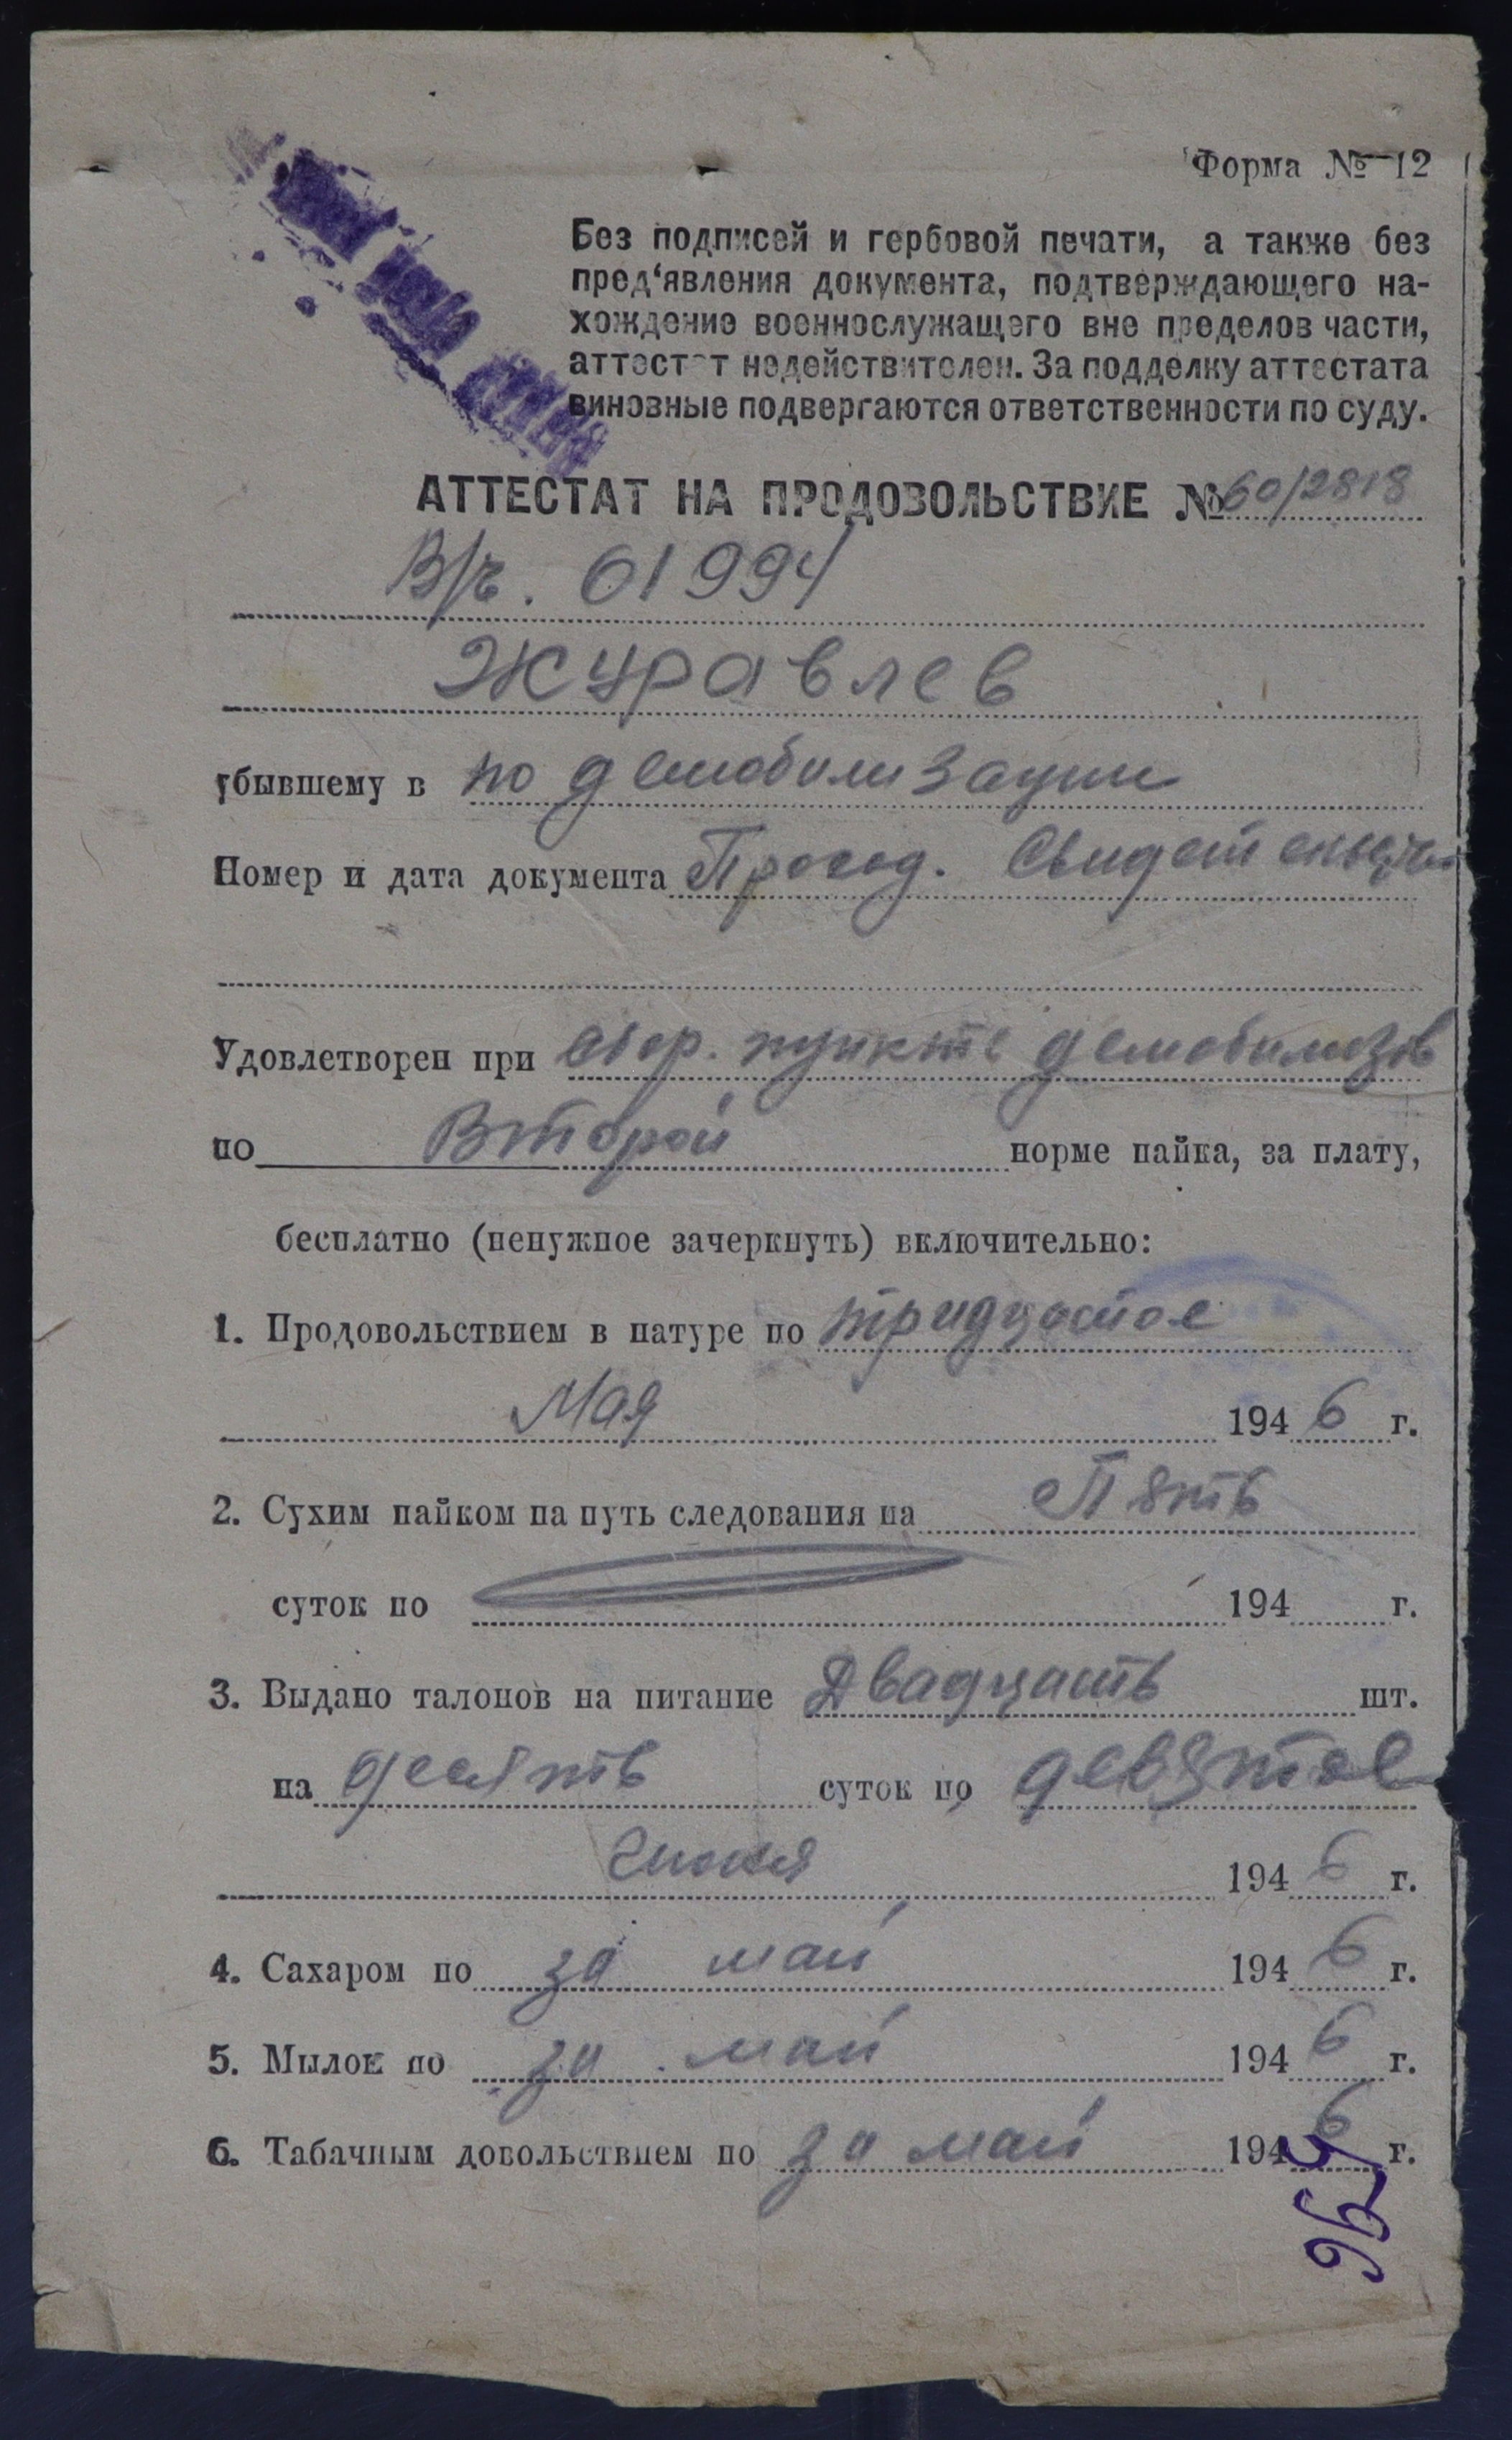 Форма № 12
Без подписей и гербовой печати, а также без
пред‘явления документа, подтверждающего на-
хождение военнослужащего вне пределов части,
аттестат недействителен. За подделку аттестата
виновные подвергаются ответственности по суду.
АТТЕСТАТ НА ПРОДОВОЛЬСТВИЕ № 60/2818
В/ч. 01994
Журавлев
убывшему в по демобилизации
Номер и дата документа Проезд. Свидетельство
Удовлетворен при сбор. пункте демобилизов
по Второй норме пайка, за плату,
бесплатно (ненужное зачеркнуть) включительно:
1. Продовольствием в натуре по тридцатое
Мая 1946 г.
2. Сухим пайком на путь следования на Пять
суток по 194 г.
3. Выдано талонов на питание Двадцать шт.
на десять суток по девятое
Июня 1946 г.
4. Сахаром по за май 1946 г.
5. Мылом по за май 1946 г.
6. Табачным довольствием по за май 1946 г.